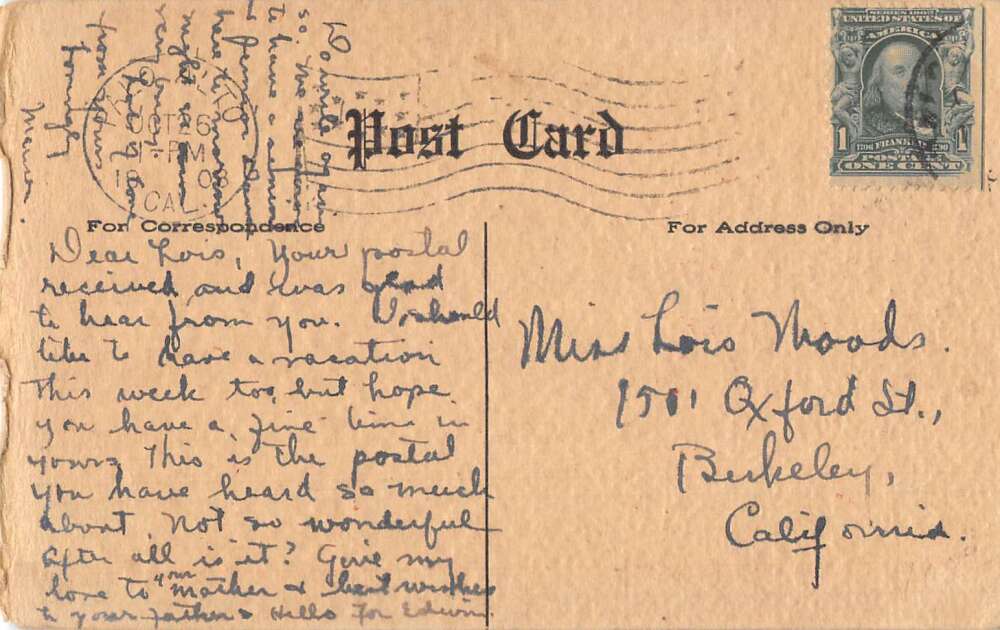 Post Card
SERIES 1902
UNITED STATES OF
AMERICA
1 1
FRANKLIN
POSTAGE
ONE CENT
OCT 26
PM
1908
CAL.
For Correspondence
For Address Only
Dear Lois, Your postal
received and was glad
to hear from you. I should
like to have a vacation
this week too, but hope
you have a fine time in
yours. This is the postal
you have heard so much
about. Not so wonderful
after all is it? Give my
love to your mother & best wishes
to your father & Hello for Edwin.
to have a senior
& Junior
here tomorrow
night
very busy
from yours
lovingly
Miss Lois Woods.
1501 Oxford St.,
Berkeley,
California.